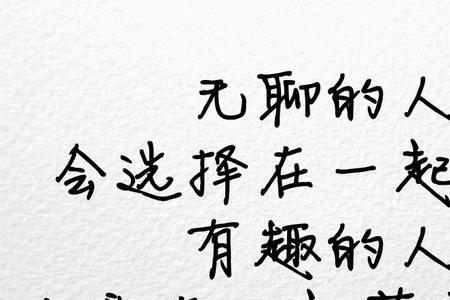 无聊的人
会选择在一起
有趣的人